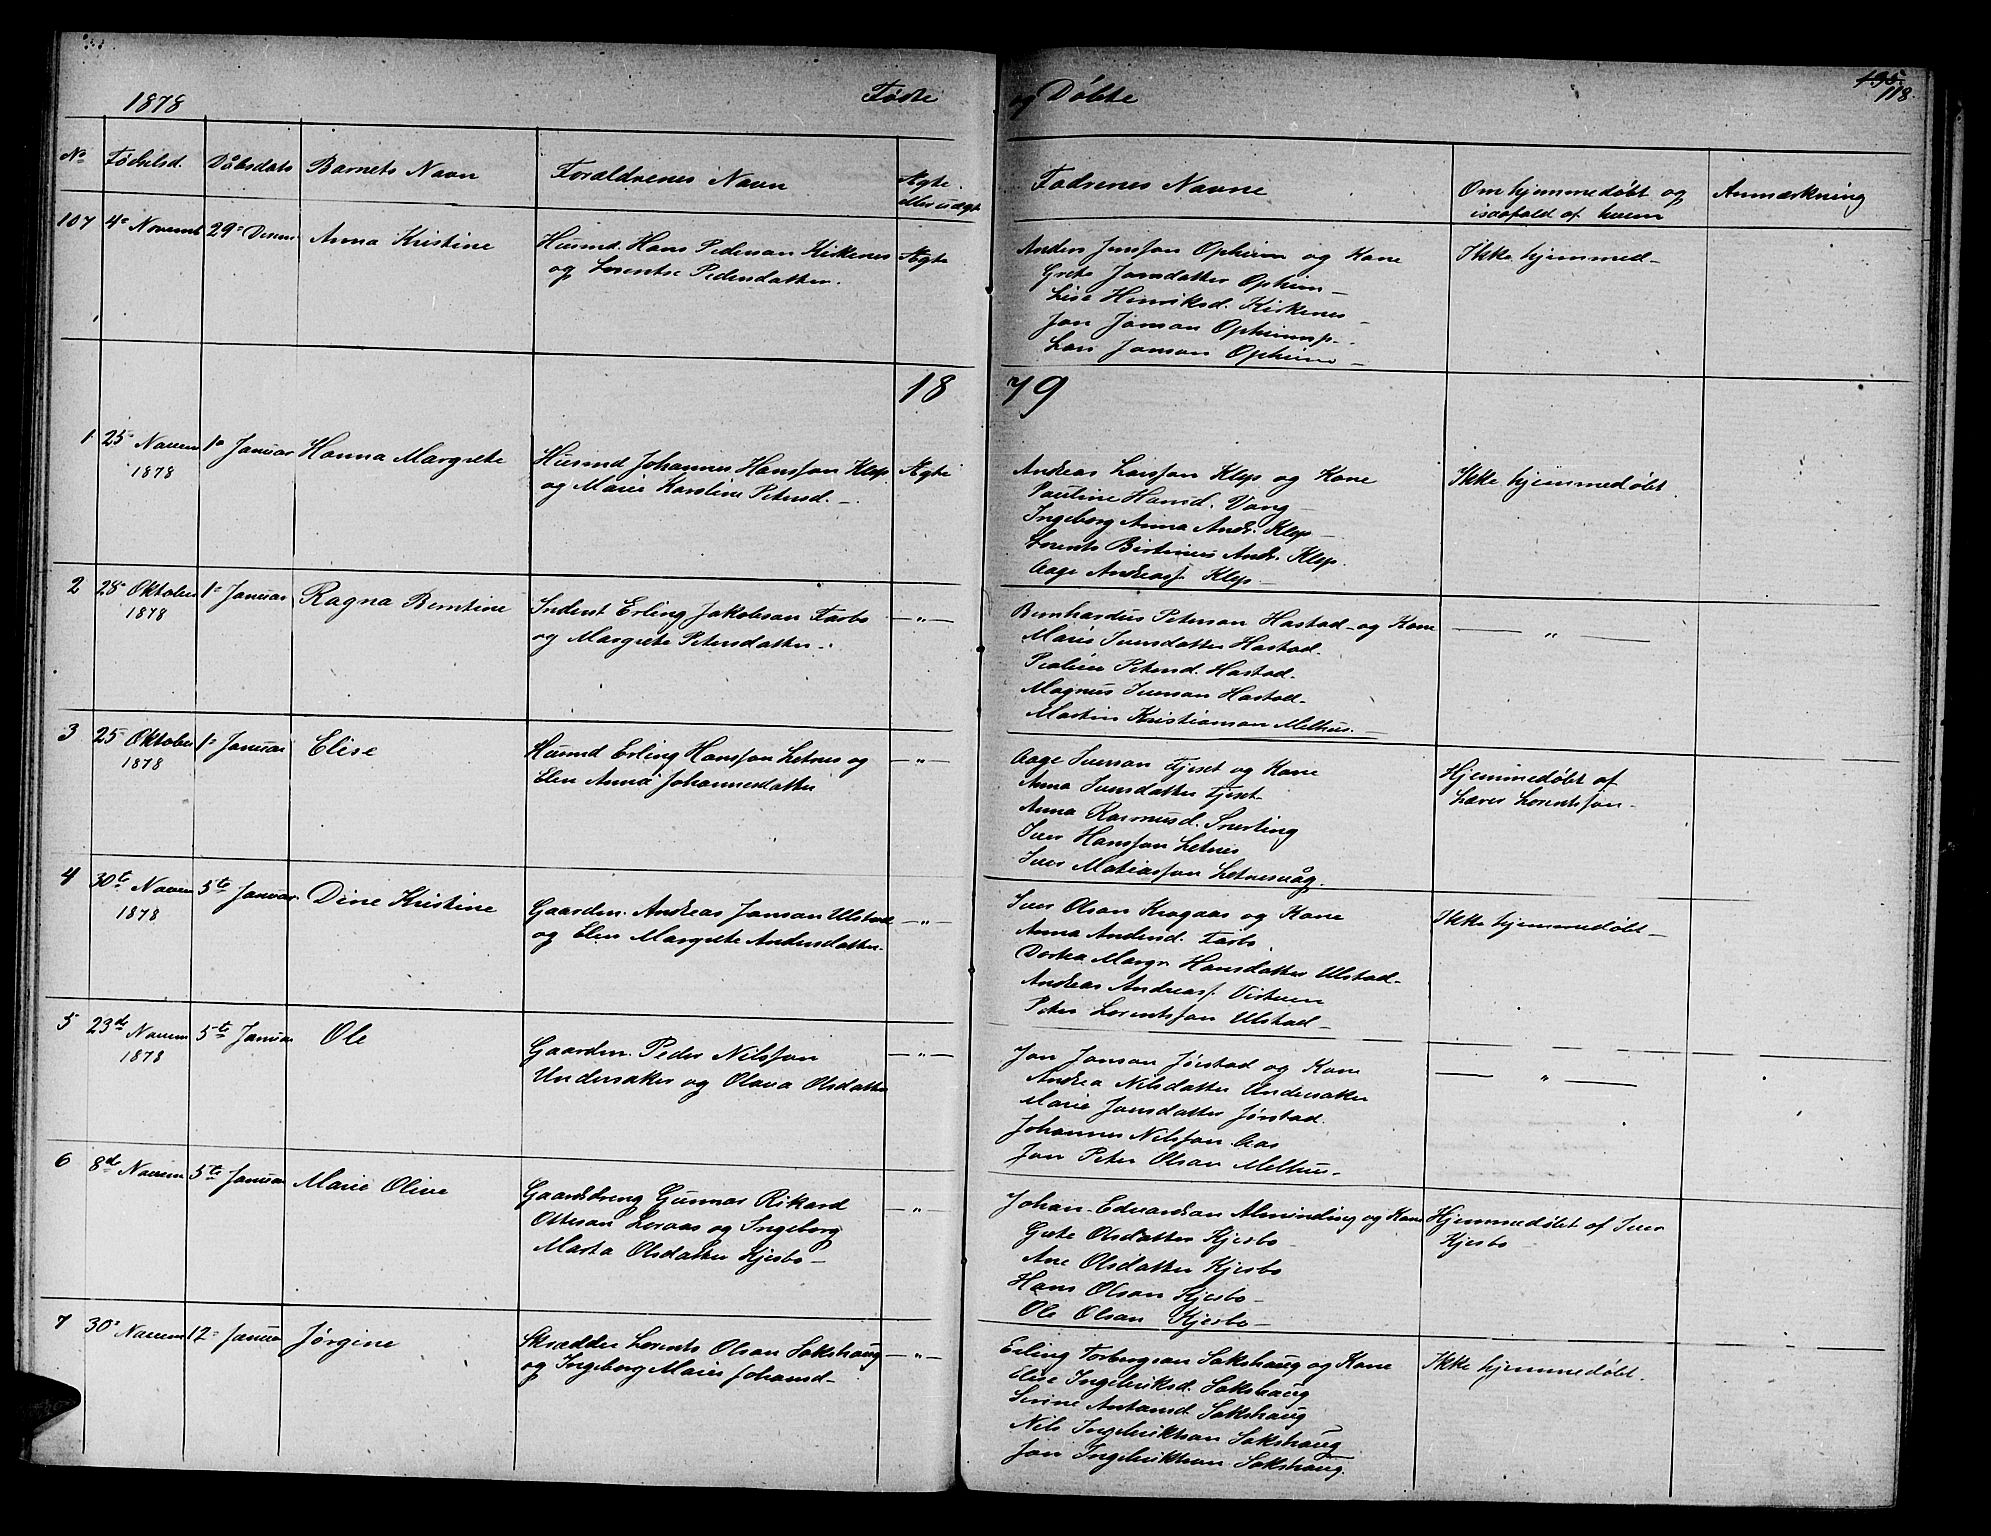 1878 Fødte og Døbte 195. 118.
No Fødselsd. Daabsdato Barnets Navn Forældrenes Navn Ægte eller uægte Fadrenes Navne Om hjemmedøbt og isaafald af hvem Anmærkning
107 4de Novemb 29de Desem Anna Kristine
Husmd. Hans Pederson Kirkenes
og Lorentse Pedersdatter.
Ægte
Anders Jonsson Opheim og Kone
Grete Jonsdatter Opheim
Lise Henriksd. Kirkenes
Jon Jonson Opheimsp.
Lars Jonson Opheim
Ikke hjemmed
1879
1 25 Novem 1ste Januar Hanna Margrete
1878
Husmd Johannes Hansson Klep
og Marie Karoline Petersd.
Ægte
Andreas Larsson Klep og Kone
Pauline Hansd. Vang
Ingeborg Anna Andr. Klep
Lorents Birtinus Andr. Klep.
Aage Andreass. Klep
Ikke hjemmedøbt.
2 28 Oktober 1 Januar Ragna Berntine
1878
Inderst Erling Jakobson Farbo
og Margrete Petersdatter.
— „ —
Bernhardus Peterson Hastad og Kone
Marie Iversdatter Hastad.
Petersd. Hastad.
Magnus Iverson Hastad
Martin Kristianson Melhus.
— „ —
3 25 Oktober 1 Januar Elise
1878
Husmd Erling Hansson Letnes og
Elen Anna Johannesdatter
— „ —
Aage Iverson Fjeset og Kone
Anna Iversdatter Fjeset
Anna Rasmusd. Snerting
Iver Hansson Letnes
Iver Matiasson Letnesvåg.
Hjemmedøbt af
Lærer Lorentsson.
4 30te Novem 5te Januar Dine Kristine
1878
Gaardm. Andreas Jonson Ulstad
og Elen Margrete Andersdatter.
— „ —
Iver Olson Kragaas og Kone
Anna Andersd. Farbo
Dortea Margr. Hansdatter Ulstad
Andreas Andreass. Vistven
Peter Lorentsson Ulstad
Ikke hjemmedøbt
5 23de Novem 5te Januar Ole
1878
Gaardm. Peder Nilsson
Undersaker og Olava Olsdatter
— „ —
Jon Jonson Jørstad og Kone
Andrea Nilsdatter Undersaker
Marie Jonsdatter Jørstad.
Johannes Nilsson Aas
Jon Peter Olson Melhus.
— „ —
6 8de Novem 5te Januar Marie Olive
Gaardsdreng Gunnar Rikard
Otteson Loraas og Ingeborg
Marta Olsdatter Kjesbo
— „ —
Johan Edvardson Alminding og Kone
Grete Olsdatter Kjesbo
Ane Olsdatter Kjesbo
Hans Olson Kjesbo
Ole Olson Kjesbo
Hjemmedøbt af Iver
Kjesbo
7 30 Novem 12 Januar Jørgine
Skrædder Lorents Olson Sakshaug
og Ingeborg Marie Johansd
— „ —
Erling Torbergson Sakshaug og Kone
Elise Ingebriktsd. Sakshaug
Sirine Antonsd Sakshaug
Nils Ingebriktson Sakshaug
Jon Ingebriktson Sakshaug.
Ikke hjemmedøbt.